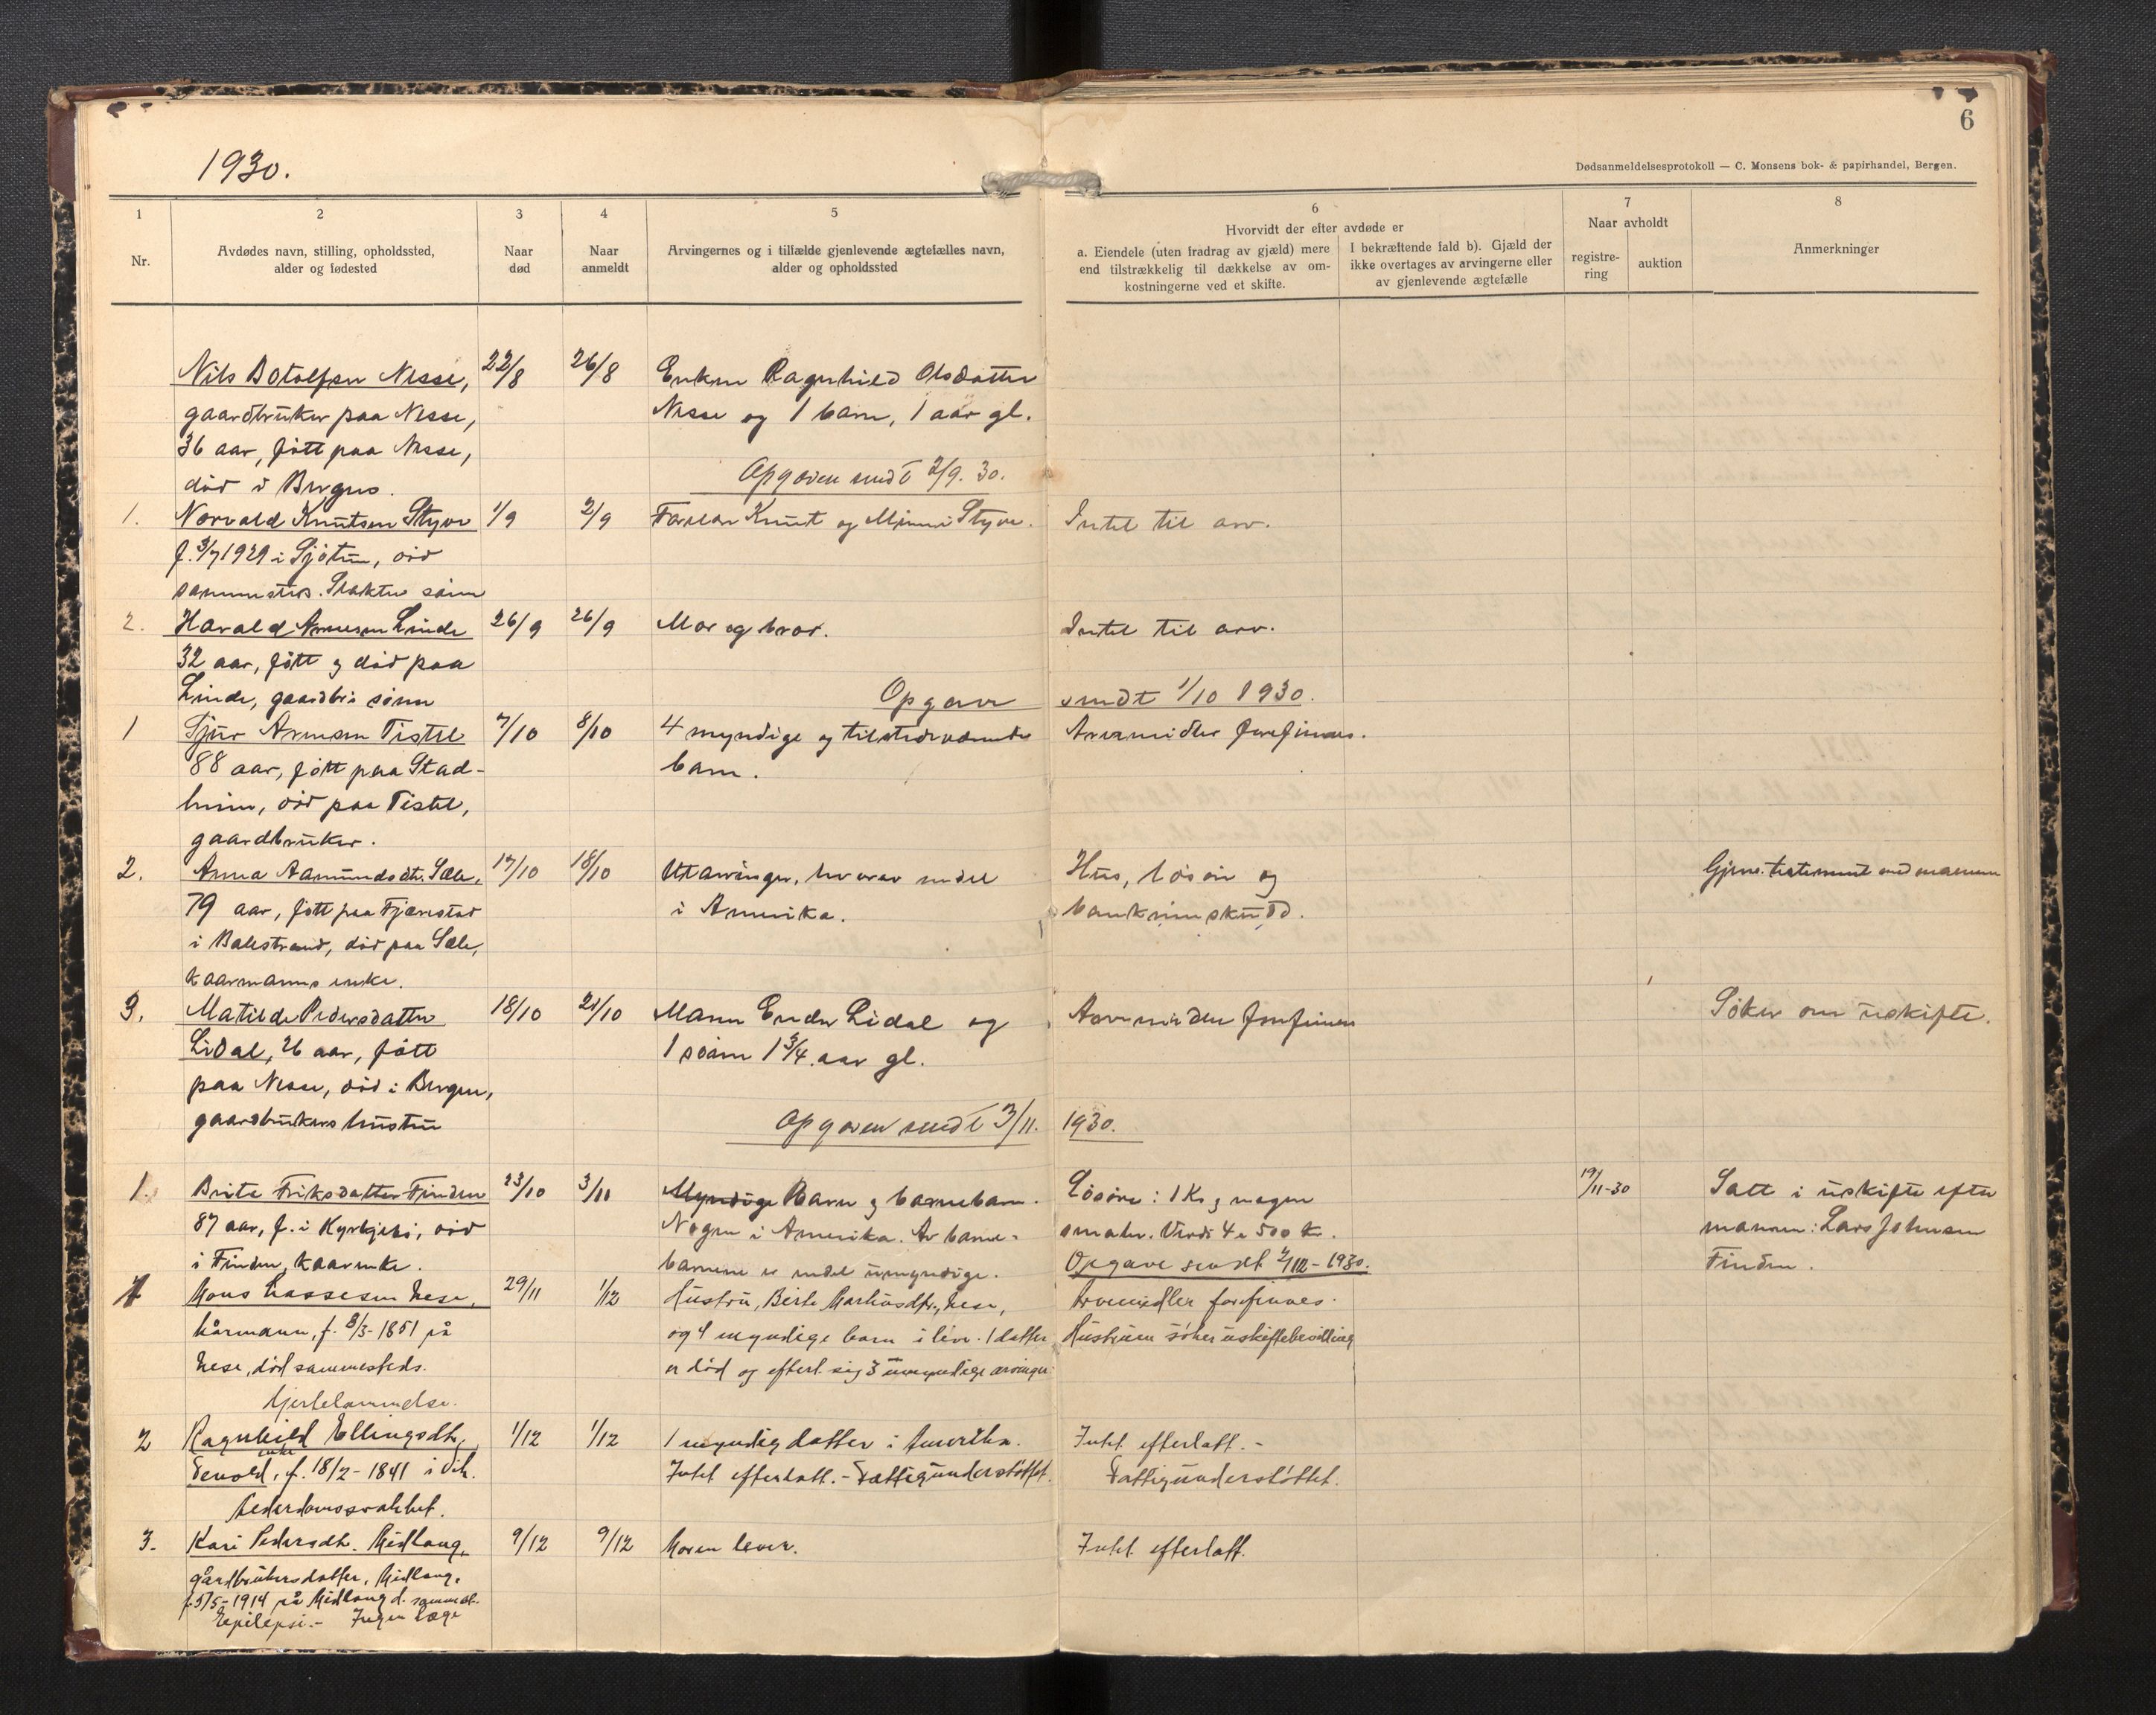 6
1930.
Dødsanmeldelsesprotokoll — C. Monsens bok- & papirhandel, Bergen.
1 2 3 4 5 6 7 8
Nr.
Avdødes navn, stilling, opholdssted,
alder og fødested
Naar
død
Naar
anmeldt
Arvingernes og i tilfælde gjenlevende ægtefælles navn,
alder og opholdssted
Hvorvidt der efter avdøde er
a. Eiendele (uten fradrag av gjæld) mere
end tilstrækkelig til dækkelse av om-
kostningerne ved et skifte.
I bekræftende fald b). Gjæld der
ikke overtages av arvingerne eller
av gjenlevende ægtefælle
Naar avholdt
registre-
ring
auktion
Anmerkninger
Nils Botolfsen Nesse, 22/8 26/8 Enken Ragnhild Olsdatter
gaardbruker paa Nesse, Nesse og 1 barn, 1 aar gl.
36 aar, født paa Nesse,
død i Bergen. Opgaven sendt 2/9. 30.
1. Norvald Knutsen Styve 1/9 2/9 Knut og Styve. Intet til arv.
f. 3/7 1929 i død
sammesteds. sønn
2. Harald Arnesen Linde 26/9 26/9 Mor og bror. Intet til arv.
32 aar, født og død paa
Linde, gaardbr. sønn Opgave sendt 1/10 1930.
1 Sjur Arnesen Tistel 7/10 8/10 4 myndige og tilstedeværende Arvemidler forefinnes.
88 aar, født paa Stad- barn.
heim, død paa Tistel,
gaardbruker.
2. Anna Aamundsdtr. Sæle, 17/10 18/10 Utarvinger, hvorav endel Hus, løsøre og Gjens. testament med mannen
79 aar, født paa Fjærestad i Amerika. bankinnskudd.
i Balestrand, død paa Sæle,
kaarmanns enke.
3. Matilde Pedersdatter 18/10 21/10 Mann Endre Lidal og Arvemidler forefinnes Søker om uskifte.
Lidal, 26 aar, født 1 sønn 1 3/4 aar gl.
paa Nesse, død i Bergen,
gaardbrukers hustru Opgaven sendt 3/11. 1930.
1. Brita Eriksdatter Finden 23/10 3/11 Myndige Barn og barnebarn. Løsøre: 1 Ko og nogen 19/11-30 Satt i uskifte efter
87 aar, f. i Kyrkjebø, død Nogen i Amerika. Av barne- smaler. Verdi 4 a 500 kr. mannen: Lars Johnsen
i Finden, kaarenke. barnene er endel umyndige. Opgave sendt 1930. Finden.
1 Mons Lassesen Nese, 29/11 1/12 Hustru, Berte Markusdtr., Nese, Arvemidler forefinnes.
kårmann, f. 8/3-1851 på og 4 myndige barn i live. 1 datter Hustruen søker uskiftebevilling
Nese, død sammesteds. er død og efterl. sig 3 umyndige arvinger.
Hjertelammelse.
2 Ragnhild Ellingsdtr., 1/12 1/12 1 myndig datter i Amerika. Intet efterlatt.-
enke
f. 18/2-1841 i Vik. Intet efterlatt.- Fattigunderstøttet. Fattigunderstøttet.
Alderdomssvakhet.
3. Kari Pedersdtr. Midlang, 9/12 9/12 Moren lever. Intet efterlatt.
gårdbrukersdatter, Midlang.
f. 5/5-1914 på Midlang d. sammest.
Epilepsi.- Ingen læge